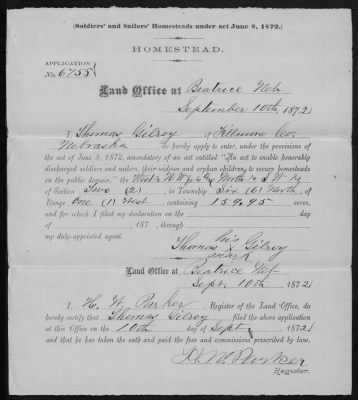 (Soldiers' and Sailors' Homesteads under act June 8, 1872.)
HOMESTEAD.
APPLICATION
No. 6755
Land Office at Beatrice Neb
September 10th, 1872
I, Thomas Gilroy of Fillmore Co.
Nebraska do hereby apply to enter, under the provisions
of the act of June 8, 1872, amendatory of an act entitled "An act to enable honorably
discharged soldiers and sailors, their widows and orphan children, to secure homesteads
on the public domain," the West ½ N W ¼ & North ½ S W ¼
of Section Two (2) in Township Six (6) North, of
Range One (1) West, containing 159.95 acres,
and for which I filed my declaration on the day
of 187 , through
my duly-appointed agent.
his
Thomas X Gilroy
mark
Land Office at
Beatrice Neb
Sept. 10th, 1872
I, H. W. Parker, Register of the Land Office, do
hereby certify that Thomas Gilroy filed the above application
at this Office on the 10th day of Sept, 1872
and that he has taken the oath and paid the fees and commissions prescribed by law.
H. W. Parker
Register.